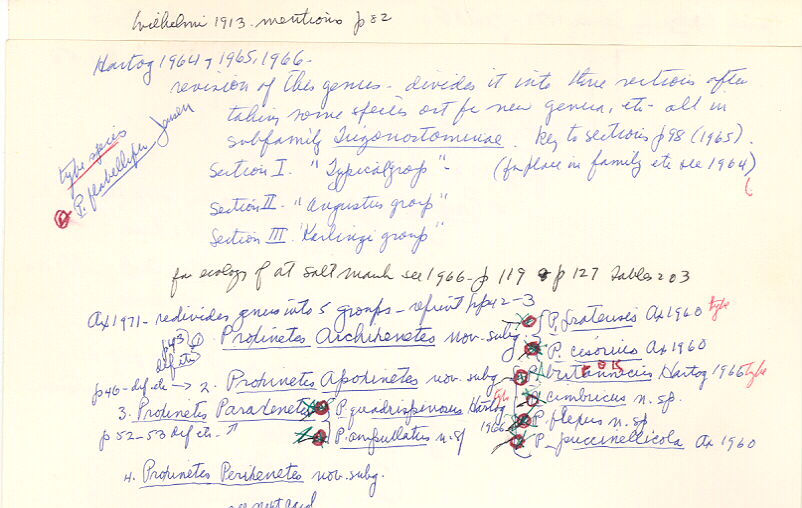 Wilhelmi 1913 - mentions p 82
Hartog 1964, 1965, 1966 -
revision of this genus - divides it into three sections after
taking some species out for new genera, etc - all in
subfamily Trigonostominae. Key to sections p 98 (1965).
Section I. "Typical group" - (for place in family etc see 1964)
Section II. "Angustus group"
Section III "Karlingi group"
type species
P. flabellifer Jensen
for ecology of at salt marsh see 1966 - p 119 & p 127 Tables 2 & 3
Ax 1971 - redivides genus into 5 groups - reprint pp 42-3
p 43
def. etc
1. Proxenetes Archixenetes nov. subg.
P. frateusis Ax 1960 type
P. cisorius Ax 1960
p 46 - def. etc → 2. Proxenetes Apoxenetes nov. subg.
P. britannicus Hartog 1966 type
P. cimbricus n. sp.
P. flexus n. sp
P. puccinellicola Ax 1960
3. Proxenetes Paraxenetes
p 52-53 def. etc. ↑
P. quadrispinosus Hartog 1966 type
P. ampullatus n. sp
4. Proxenetes Perixenetes nov. subg.
see next card